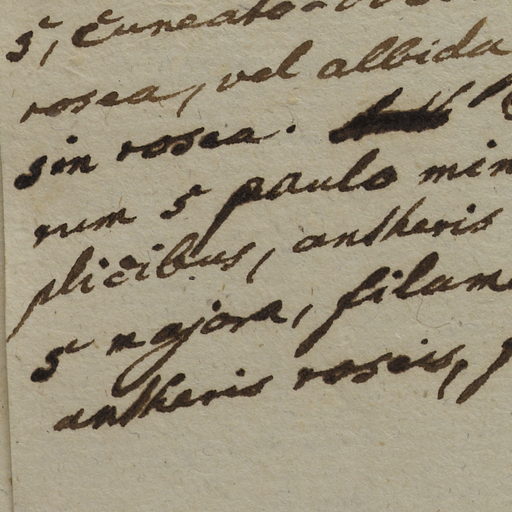 5, cuneato-
rosea, vel albida
sin rosea.
rum 5 paulo min
plicibus, antheris
5 majora, filam
antheris roseis,